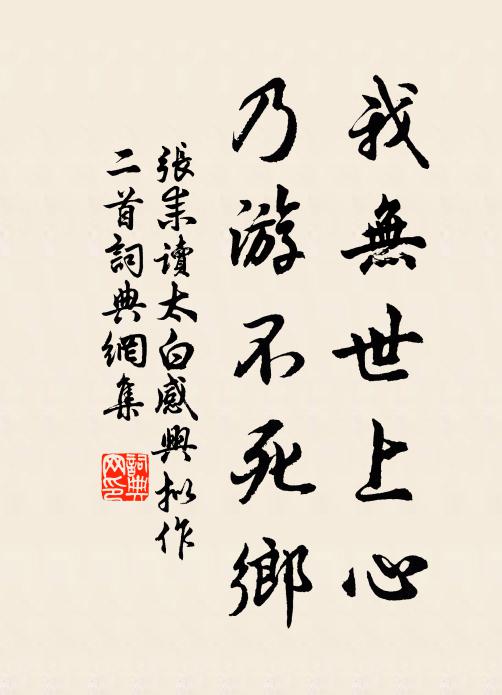 我無世上心
乃游不死鄉
張耒讀太白感興擬作
二首詞典網集
詞典網印